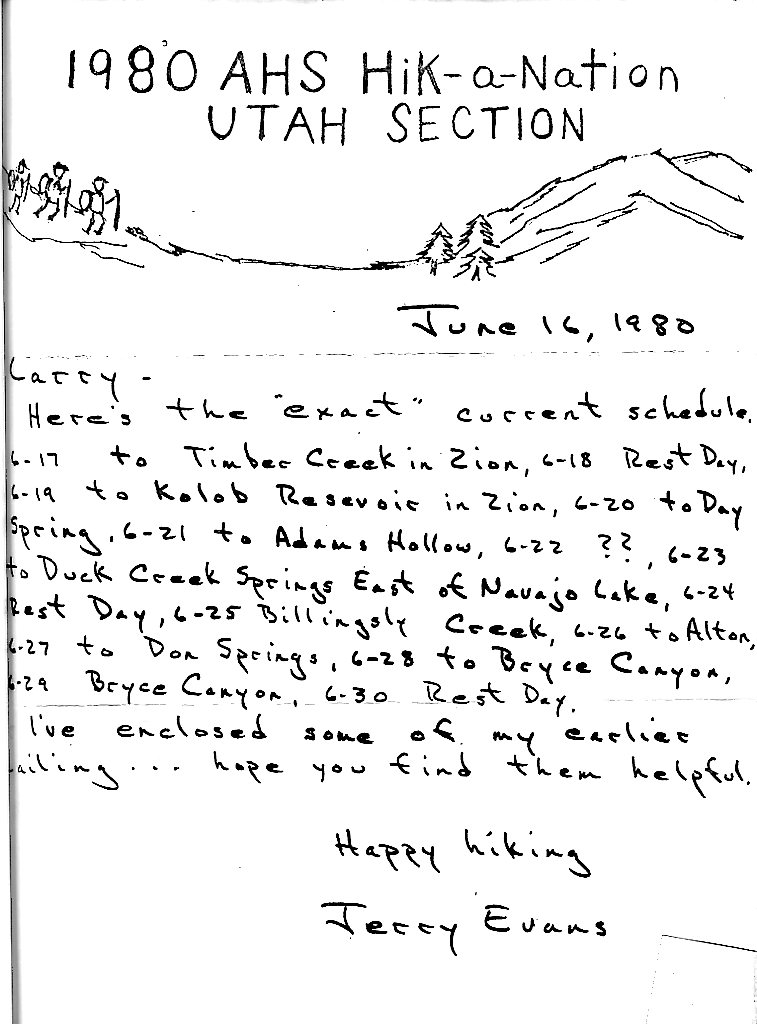 1980 AHS HiK-a-Nation
UTAH SECTION
June 16, 1980
Larry -
Here's the "exact" current schedule.
6-17 to Timber Creek in Zion, 6-18 Rest Day,
6-19 to Kolob Resevoir in Zion, 6-20 to Day
Spring, 6-21 to Adams Hollow, 6-22 ??, 6-23
to Duck Creek Springs East of Navajo Lake, 6-24
Rest Day, 6-25 Billingsly Creek, 6-26 to Alton,
6-27 to Don Springs, 6-28 to Bryce Canyon,
6-29 Bryce Canyon, 6-30 Rest Day.
I've enclosed some of my earlier
mailing... hope you find them helpful.
Happy hiking
Jerry Evans